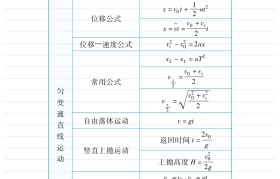 位移公式
x=v₀t+½at²
x=v̄t=(v₀+vₜ)/2 t
位移—速度公式
vₜ²-v₀²=2ax
匀变速直线运动
常用公式
x₂-x₁=aT²
v_(t/2)=(v₀+vₜ)/2
v_(x/2)=√((v₀²+vₜ²)/2)
自由落体运动
v=gt
竖直上抛运动
返回时间 t=2v₀/g
上抛高度 H=v₀²/2g